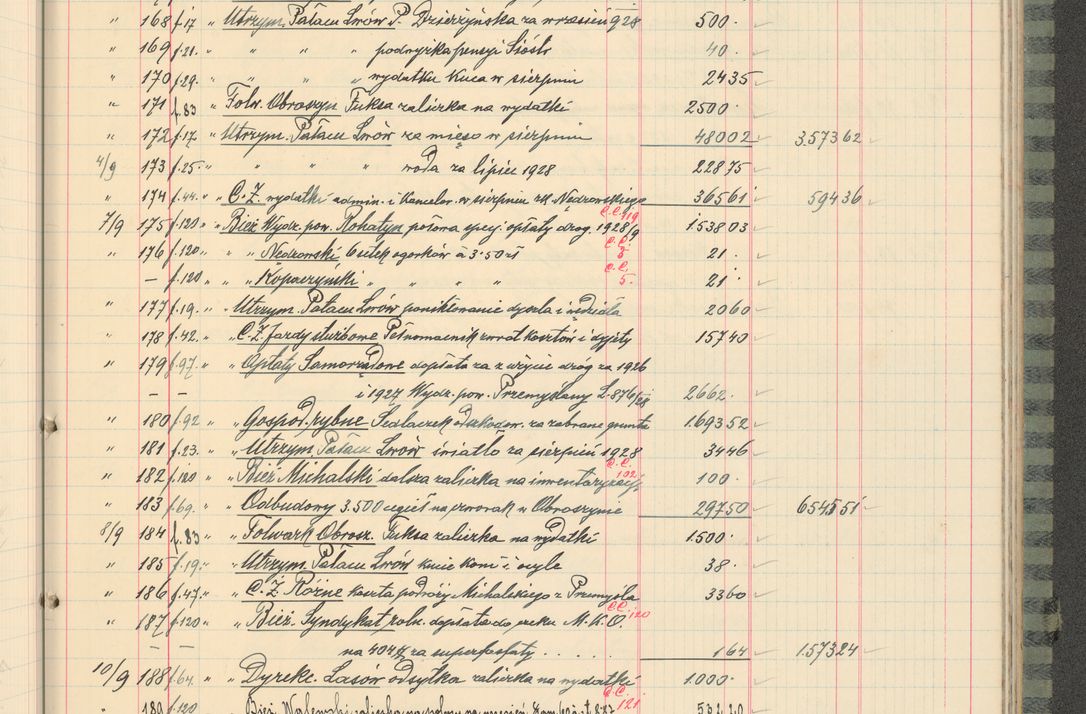 " 168 f.17 " Utrzym. Pałacu Lwów P. Dzierżyńska za wrzesień 928 500·
" 169 f.21. " " " " podwyżka pensyi Sióstr 40·
" 170 f.29. " " " " wydatku Kuca w sierpniu 2435
" 171 f.83 " Folw. Obroszyn Fuksa zaliczka na wydatki 2500·
" 172 f.17. " Utrzym. Pałacu Lwów za mięso w sierpniu 48002 3.57362
4/9 173 f.25. " " " " woda za lipiec 1928 22875
" 174 f.44. " C.Z. wydatki admin. i kancelar. w sierpniu rk. Nędzowskiego 36561 59436
C.C. 119
7/9 175 f.120 " Bież Wydz. pow. Rohatyn połowa specj. opłaty drog. 1928/9 1.53803
C.C. 5
" 176 f.120 " " Nędzowski 6 sztek ogórków à 3·50 zł 21·
C.C. 5.
— f.120 " " Kopaczyński " " " " 21·
" 177 f.19. " " Utrzym. Pałacu Lwów poniklowanie dyszla i wędzidła 2060
" 178 f.42. " " C.Z. Jazdy służbowe Pełnomocnik zwrot kosztów i dyjety 15740
" 179 f.97. " " Opłaty Samorządowe dopłata za zużycie dróg za 1926
— — i 1927 Wydz. pow. Przemyślany L. 876/28 2662·
" 180 f.92 " Gospod. rybne Sedlaczek odszkodow. za zabrane grunta 1.69352
" 181 f.23. " " Utrzym. Pałacu Lwów światło za sierpień 1928 3446
C.C. 102
" 182 f.120 " " Bież Michalski dalsza zaliczka na inwentaryzację 100·
" 183 f.69. " " Odbudowy 3.500 cegieł na czworak w Obroszynie 29750 654551
8/9 184 f.83 " " Folwark Obrosz. Fuksa zaliczka na wydatki 1.500·
" 185 f.19. " " Utrzym. Pałacu Lwów kucie koni i ocyle 38·
" 186 f.47. " " C.Z. Różne koszta podróży Michalskiego z Przemyśla 3360
C.C. 120
" 187 f.120 " " Bież. Syndykat roln. dopłata do czeku M.K.O.
— — na 404 zł za superfosfaty . . . . . 164 1.57324
10/9 188 f.64. " " Dyrekc. Lasów odsyłka zaliczka na wydatki 1.000·
C.C. 121
" 189 f.120 Bież. zaliczka na